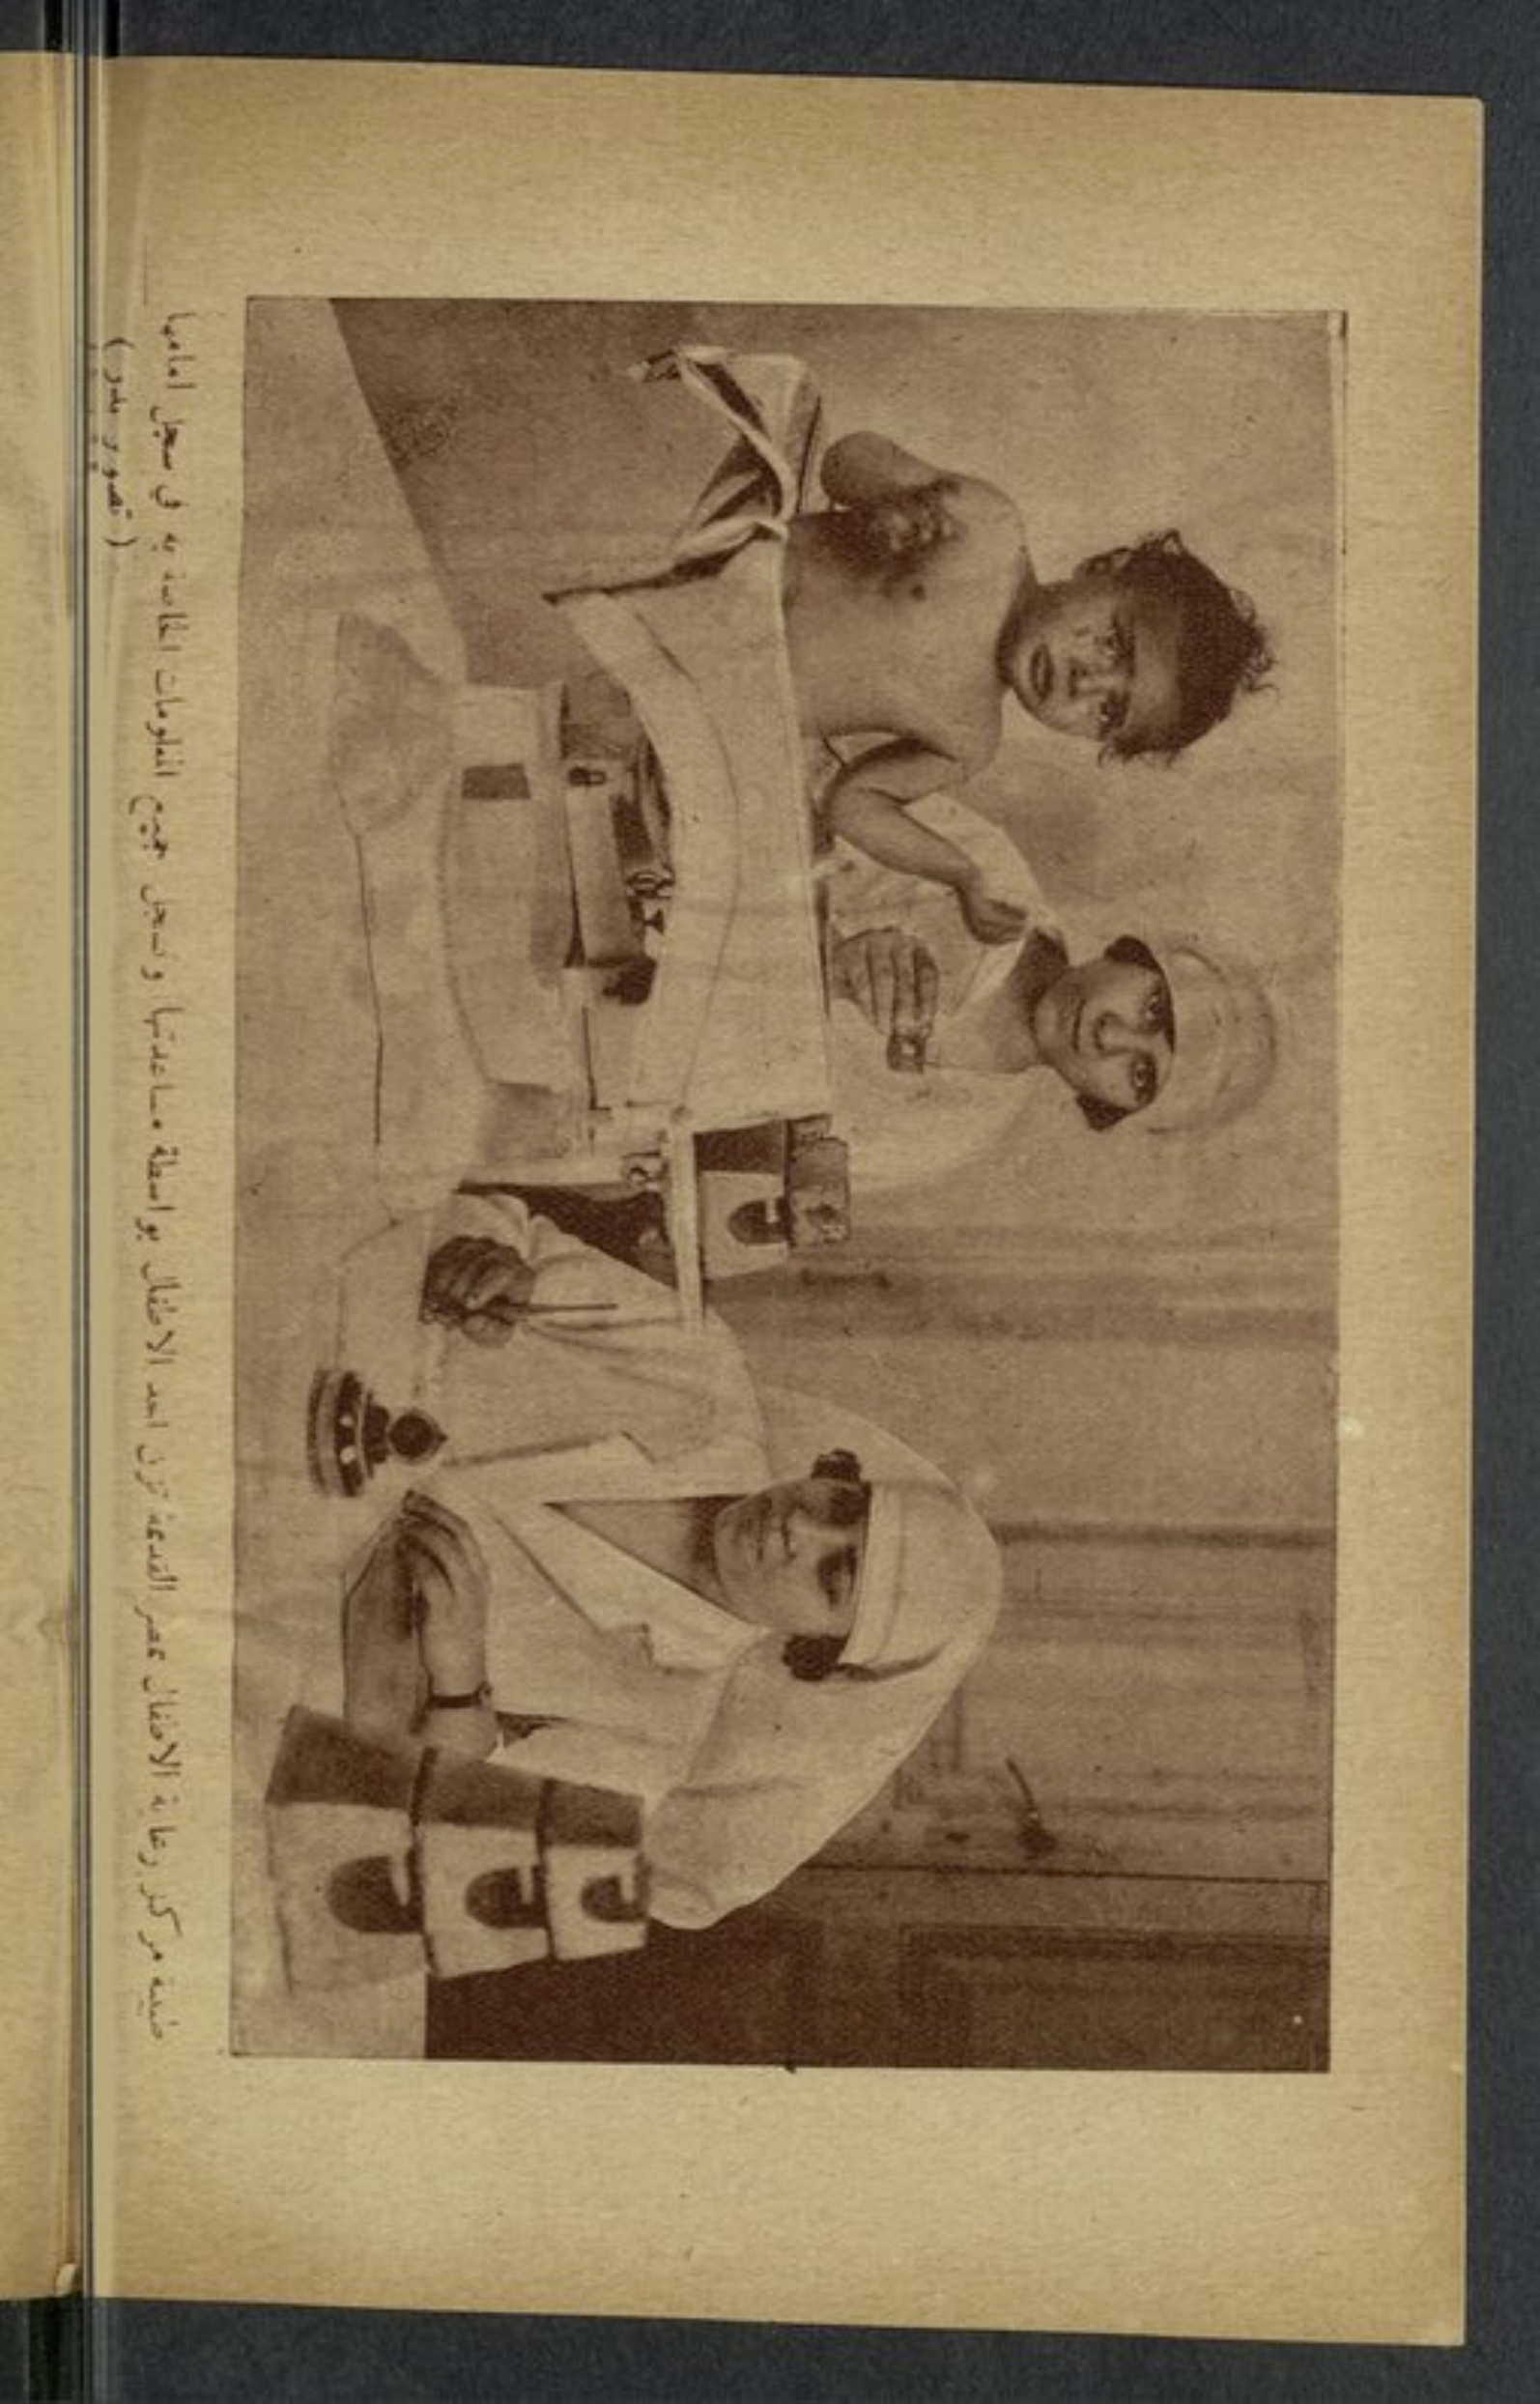 طبيبة مركز رعاية الاطفال بمصر القديمة تزن احد الاطفال بواسطة مساعدتها وتسجل جميع المعلومات الخاصة به في سجل امامها
( تصوير بدر )